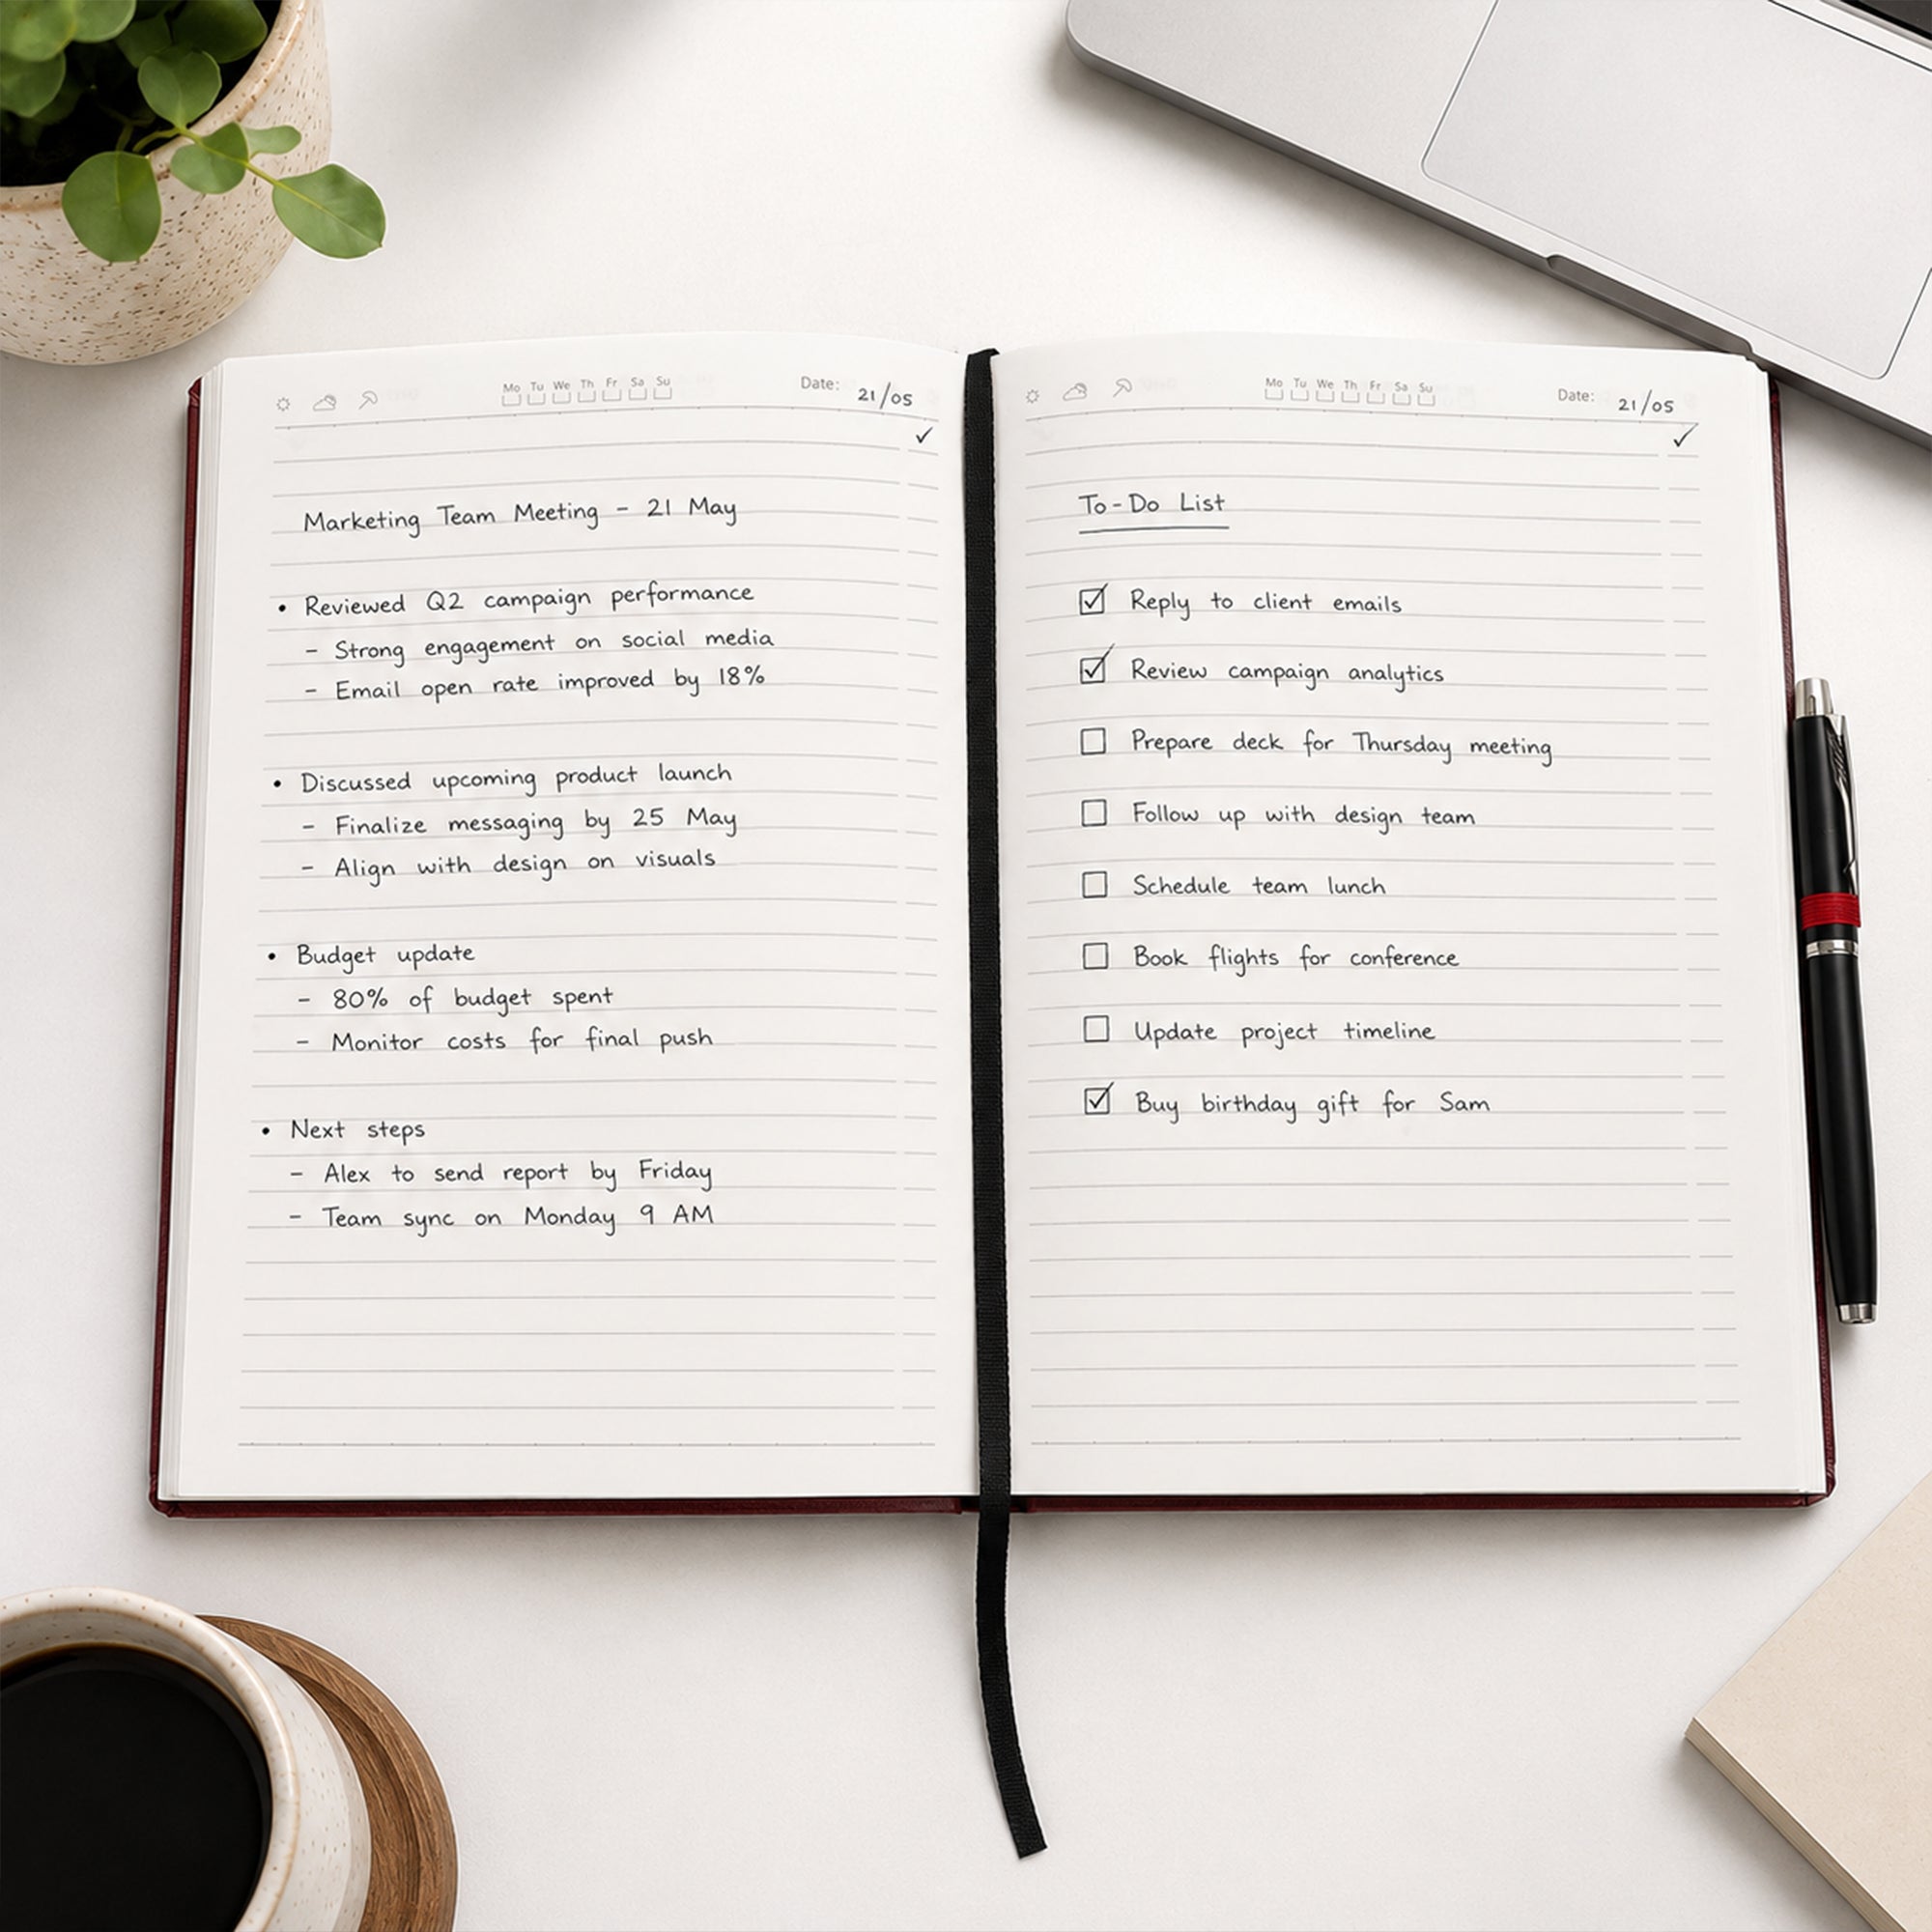 Mo Tu We Th Fr Sa Su
Date: 21/05
Marketing Team Meeting - 21 May
• Reviewed Q2 campaign performance
- Strong engagement on social media
- Email open rate improved by 18%
• Discussed upcoming product launch
- Finalize messaging by 25 May
- Align with design on visuals
• Budget update
- 80% of budget spent
- Monitor costs for final push
• Next steps
- Alex to send report by Friday
- Team sync on Monday 9 AM
Mo Tu We Th Fr Sa Su
Date: 21/05
To-Do List
☑ Reply to client emails
☑ Review campaign analytics
☐ Prepare deck for Thursday meeting
☐ Follow up with design team
☐ Schedule team lunch
☐ Book flights for conference
☐ Update project timeline
☑ Buy birthday gift for Sam